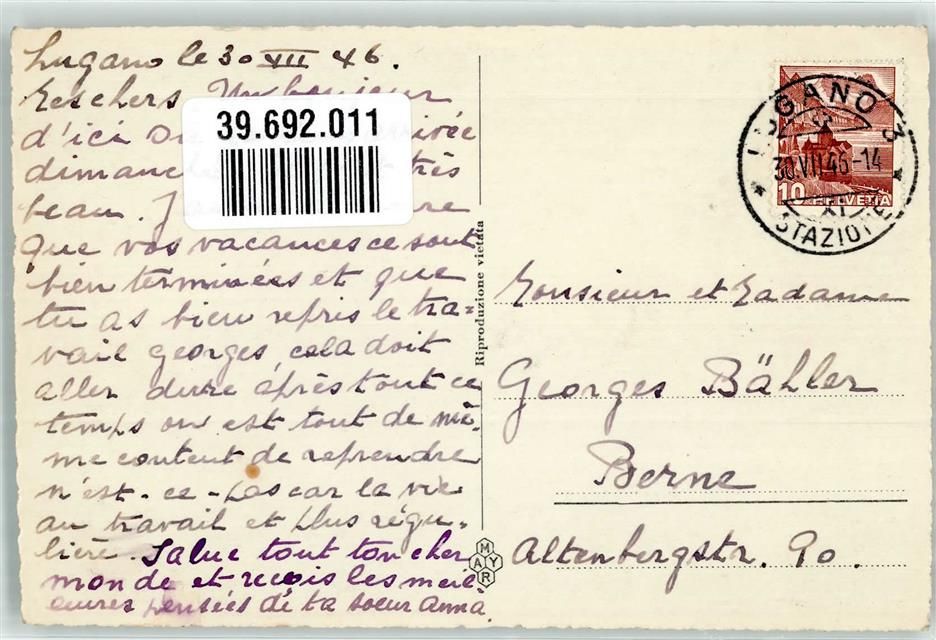 Lugano le 30 VII 46.
Mes chers Un bonjour
d'ici
dimanche très
beau. J
que vos vacances ce sont
bien terminées et que
tu as bien repris le tra=
vail Georges, cela doit
aller dure après tout ce
temps on est tout de mê-
me content de reprendre
n'est-ce-pas car la vie
au travail et plus régu-
lière. Salue tout ton cher
monde et reçois les meil
eures pensées de ta soeur Anna
39.692.011
Riproduzione vietata
MAYR
LUGANO 3
30.VII.46-14
XI
* STAZIONE *
10 HELVETIA
Monsieur et Madame
Georges Bähler
Berne
Altenbergstr. 90.